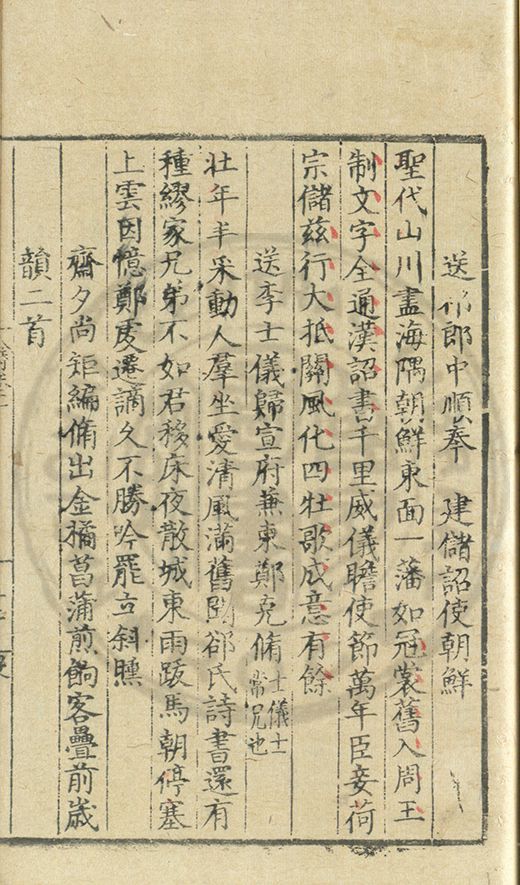 送 郎中順奉 建儲詔使朝鮮
聖代山川盡海隅朝鮮東面一藩如冠裳舊入周王
制文字全通漢詔書千里威儀瞻使節萬年臣妾荷
宗儲兹行大抵關風化四牡歌成意有餘
送李士儀歸宣府兼柬鄭克脩士儀士常兄也
壮年丰采動人羣坐愛清風滿舊 郤氏詩書還有
種繆家兄弟不如君移床夜散城東雨跋馬朝停塞
上雲因憶鄭虔遷謫久不勝吟罷立斜曛
齋夕尚矩編脩出金橘菖蒲煎餉客疊前歲
韻二首